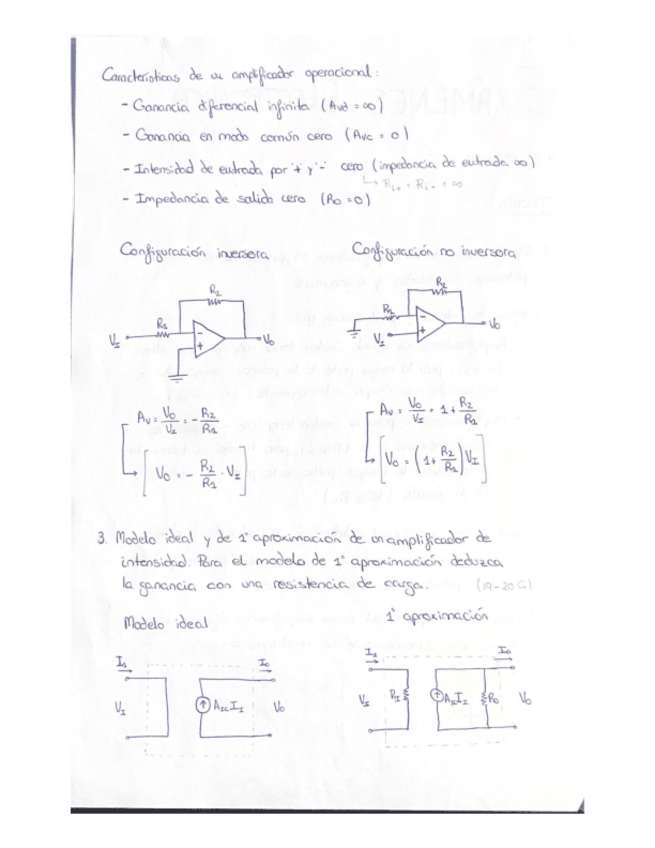 Características de un amplificador operacional:
- Ganancia diferencial infinita (Avd = ∞)
- Ganancia en modo común cero (Avc = 0)
- Intensidad de entrada por '+' y '-' cero (impedancia de entrada ∞)
↳ Ri+ = Ri- = ∞
- Impedancia de salida cero (Ro = 0)
Configuración inversora
Configuración no inversora
R2
R1
VI
-
+
Vo
R2
R1
VI
-
+
Vo
Av = Vo/VI = - R2/R1
[Vo = - R2/R1 · VI]
Av = Vo/VI = 1 + R2/R1
[Vo = (1 + R2/R1) VI]
3. Modelo ideal y de 1ª aproximación de un amplificador de
intensidad. Para el modelo de 1ª aproximación deduzca
la ganancia con una resistencia de carga. (19-20 G)
Modelo ideal
1ª aproximación
II
Io
VI
AIC II
Vo
II
Io
VI
RI
AIC II
Ro
Vo